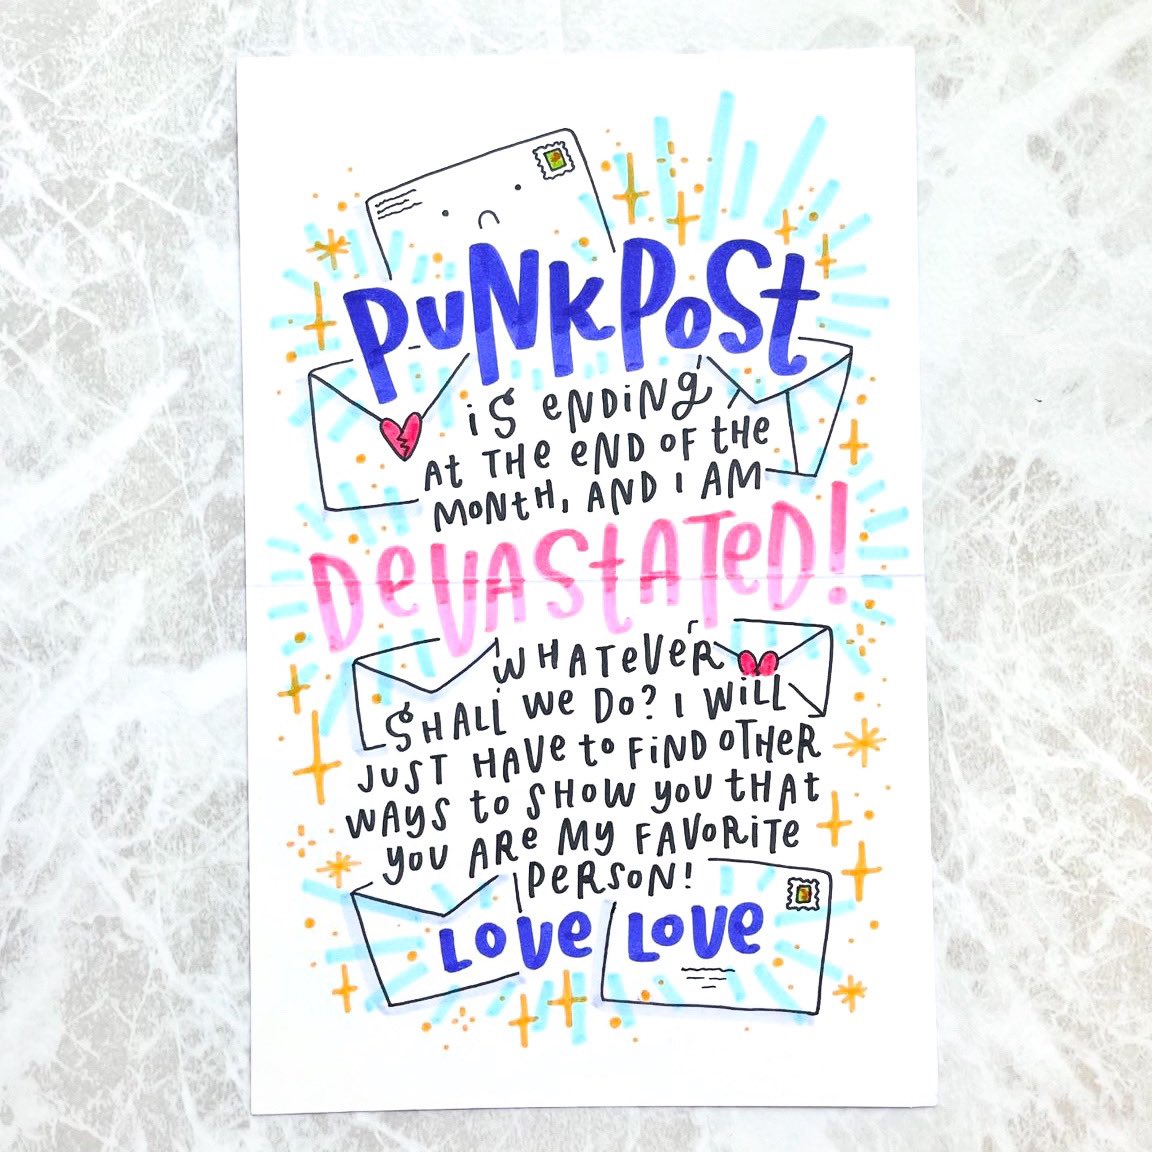 PUNKPOST
iS ENDiNG
At THe eND OF tHe
MONtH, AND I AM
DeVAStATeD!
WHATeVeR
SHALL We Do? I WiLL
JUST HAVe to FiND OTHER
WAYS to SHOW YOU tHAt
YOU ARe MY FAVORITE
PERSON!
LOVe LOVe